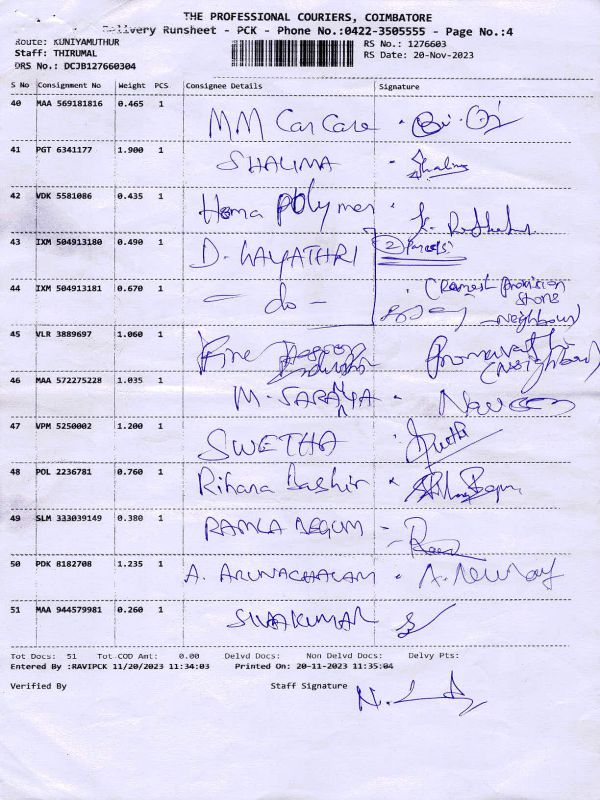 THE PROFESSIONAL COURIERS, COIMBATORE
Delivery Runsheet - PCK - Phone No.:0422-3505555 - Page No.:4
Route: KUNIYAMUTHUR RS No.: 1276603
Staff: THIRUMAL RS Date: 20-Nov-2023
DRS No.: DCJB127660304
S No Consignment No Weight PCS Consignee Details Signature
40 MAA 569181816 0.465 1 MM Car Care
41 PGT 6341177 1.900 1 SHALIMA Shalima
42 VDK 5581086 0.435 1 Homa Polymer
43 IXM 504913180 0.490 1 D. GAYATHRI 2 Parcels
44 IXM 504913181 0.670 1 - do - (Ramesh Provision
Store
Neighbour)
45 VLR 3889697 1.060 1 Fine
(Neighbour)
46 MAA 572275228 1.035 1 M. SARANYA Naveen
47 VPM 5250002 1.200 1 SWETHA
48 POL 2236781 0.760 1 Rihana Bashir
49 SLM 333039149 0.380 1 RAMLA BEGUM
50 PDK 8182708 1.235 1 A. ARUNACHALAM
51 MAA 944579981 0.260 1 SIVAKUMAR
Tot Docs: 51 Tot COD Amt: 0.00 Delvd Docs: Non Delvd Docs: Delvy Pts:
Entered By :RAVIPCK 11/20/2023 11:34:03 Printed On: 20-11-2023 11:35:04
Verified By Staff Signature